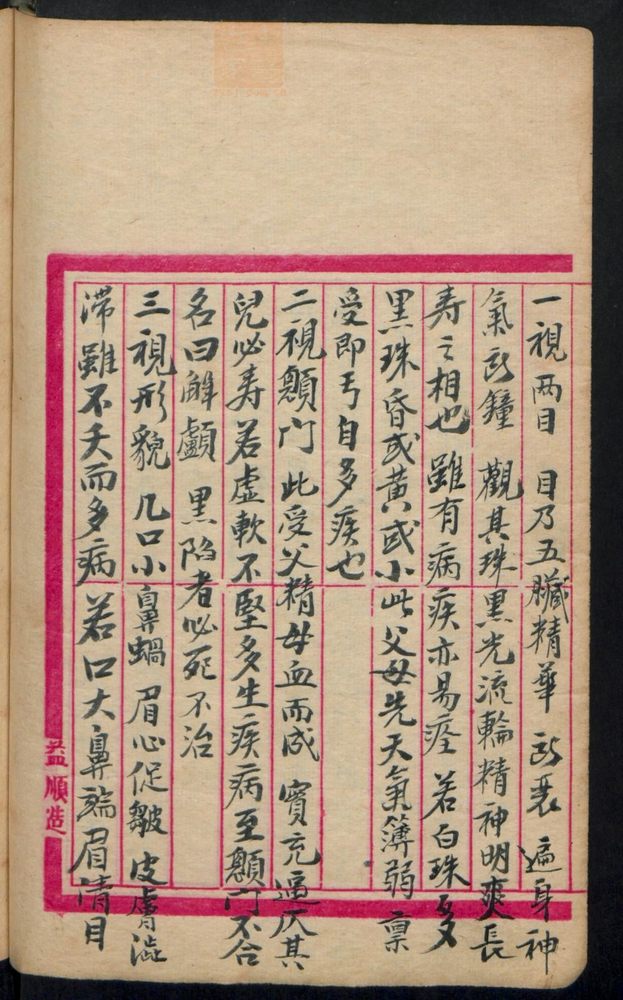 一視两目 目乃五臟精華 所衰 遍身神
氣所鐘 觀其珠黑光流輪精神明爽長
寿之相也 雖有病疾亦易痊 若白珠多
黑珠昏或黄或小此父母先天氣簿弱 禀
受即亏自多疾也
二視顖门 此受父精母血而成 實充 其
兒必寿若虛軟不堅多生疾病至顖门不合
名曰解顱 黑陷者必死不治
三視形貌 凡口小鼻蝸 眉心促皺 皮膚澁
滞雖不夭而多病 若口大鼻端眉清目
益順造